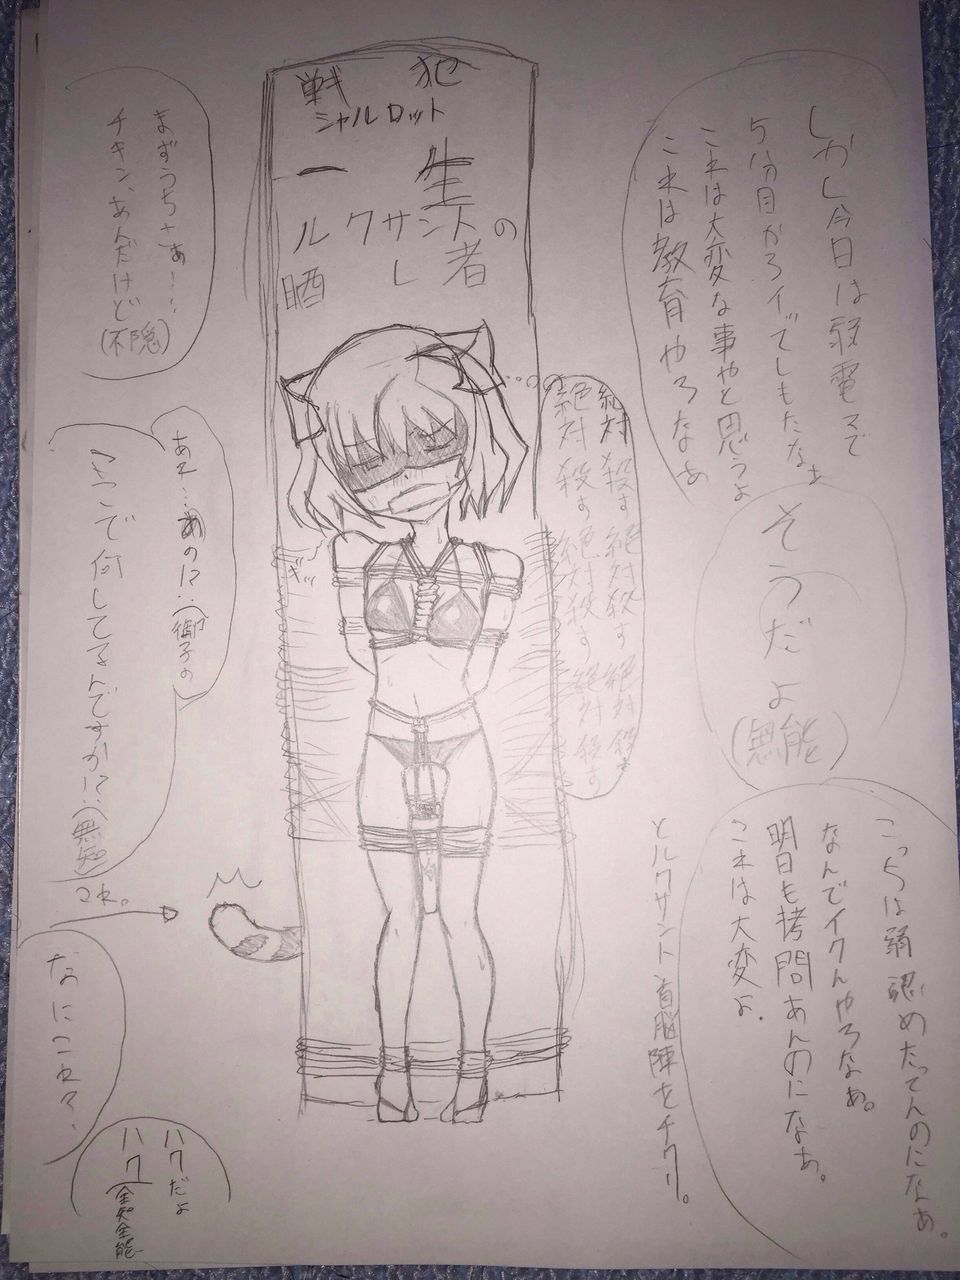 戦犯
シャルロット
一生
ルクサント人の
晒し者
しかし今日は弱電マで
5分目からイッてしもたなぁ
これは大変な事やと思うよ
これは教育やろなぁ
そうだよ
(無能)
こっちは弱認めたってんのになぁ。
なんでイクんやろなぁ。
明日も拷問あんのになぁ。
これは大変よ。
とルクサント首脳陣をチクリ。
絶対殺す絶対殺す絶対殺
絶対殺す絶対殺す絶対殺す
ギッ
まずうちさぁ…
チキン、あんだけど
(不隠)
あれ…あの!?
ここで何してるんですか!?
(無知)
これ。
なにこれぇ
ハクだよ
ハク
(全知全能)